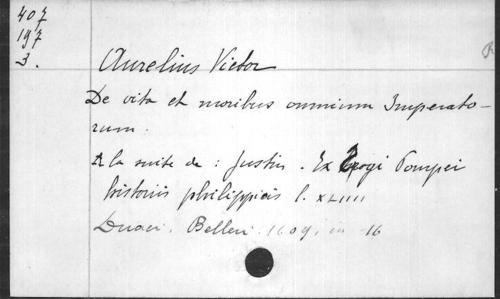 407
197
3.
Aurelius Victor
De vita et moribus omnium Imperato-
rum.
A la suite de : Justin. Ex Trogi Pompei
historiis philippicis l. XLIIII
Duaci. Belleri. 1609, in-16